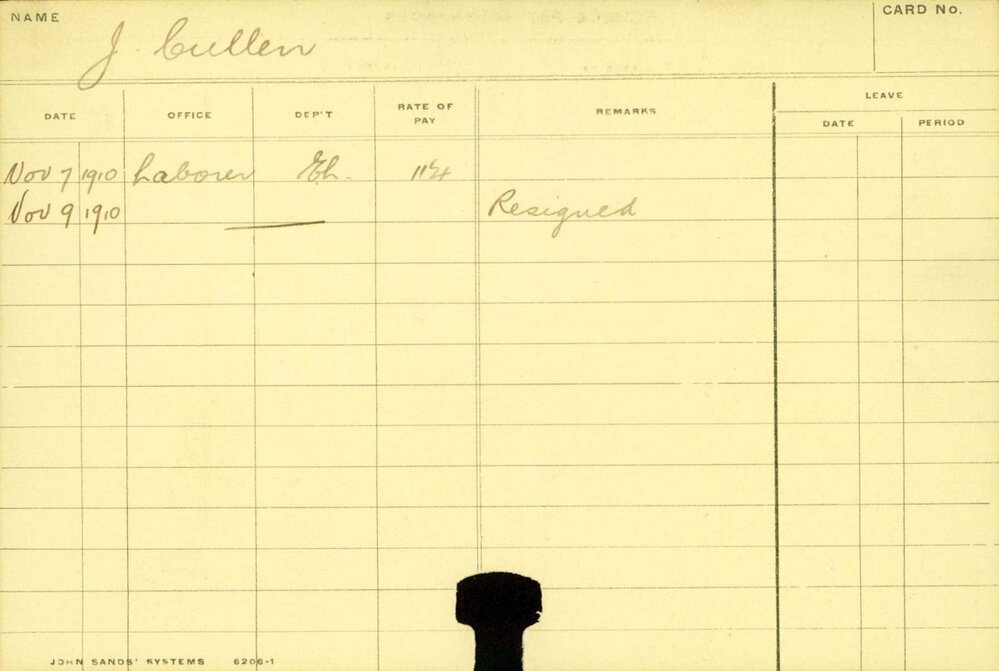 NAME
J. Cullen
CARD No.
DATE OFFICE DEP'T RATE OF PAY REMARKS LEAVE
DATE PERIOD
Nov 7 1910 Laborer
Nov 9 1910 Resigned
JOHN SANDS' SYSTEMS 6206-1